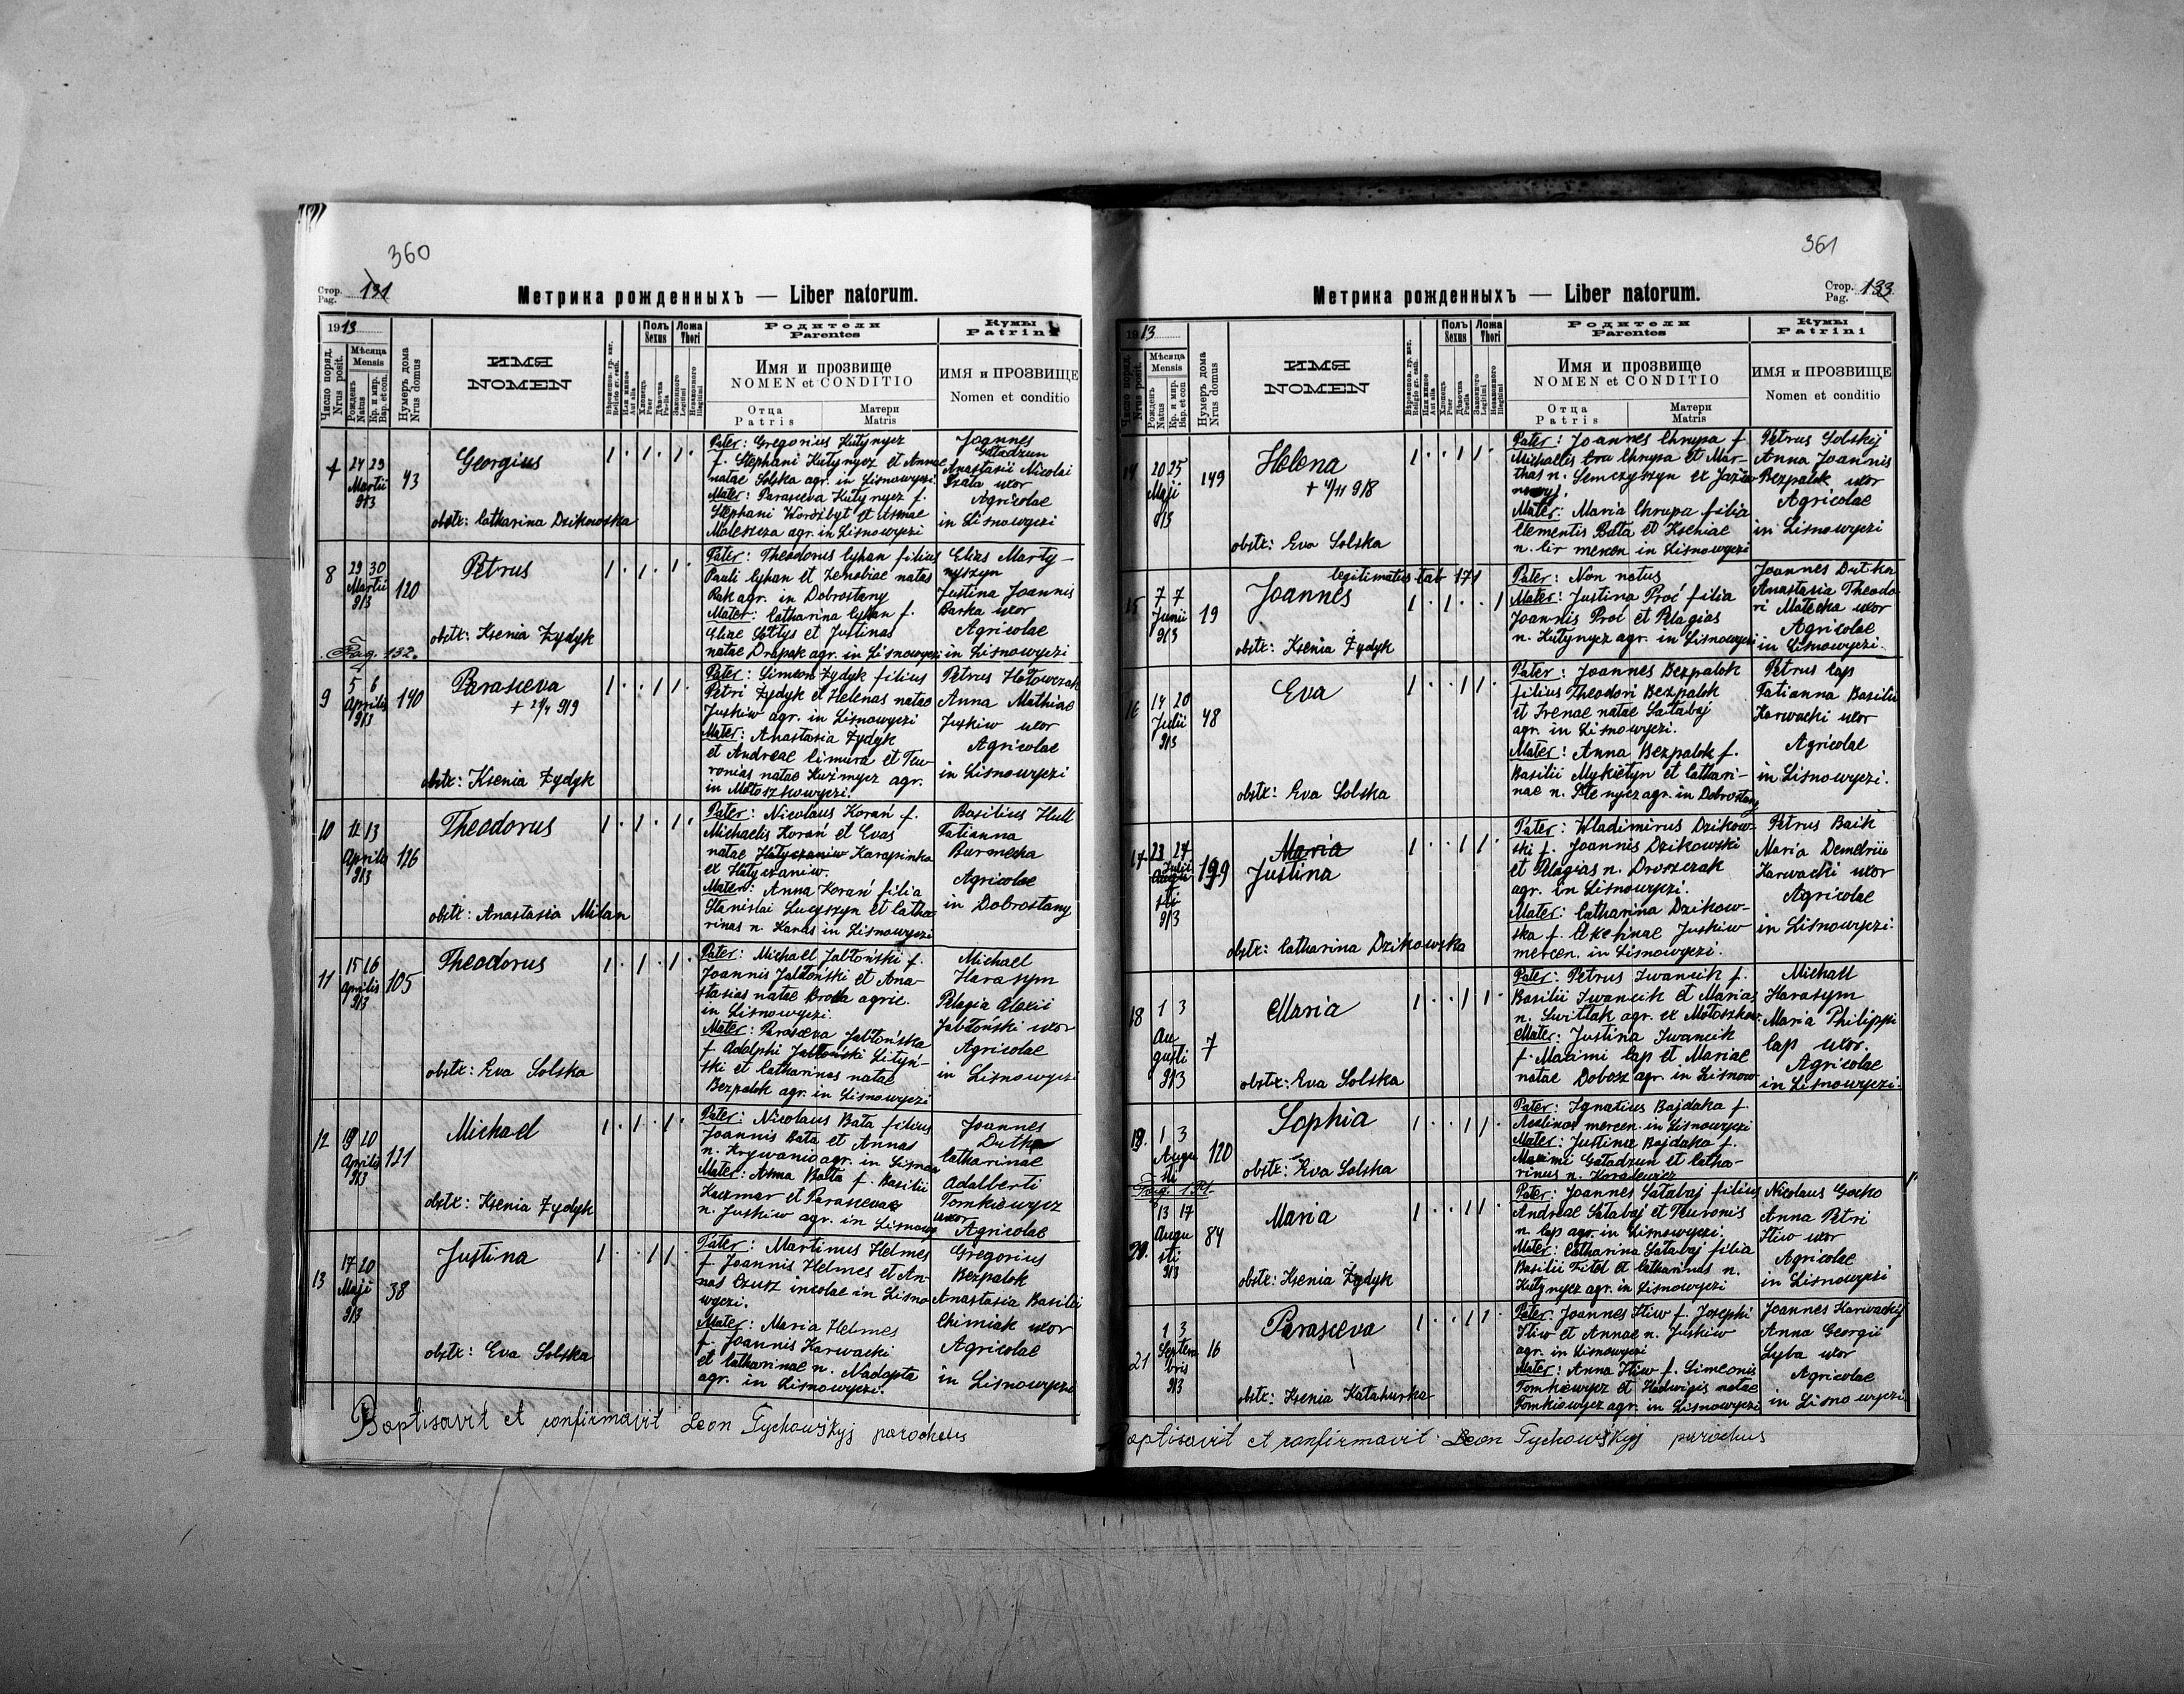 360
Стор.
Pag. 131
Метрика рожденныхъ — Liber natorum.
1913
Число поряд.
Nrus posit.
Мѣсяца
Mensis
Рожден.
Natus
Кр. и мир.
Bap. et con.
Нумеръ дома
Nrus domus
ИМЯ
NOMEN
Полъ
Sexus
Хлопець
Puer
Дѣвочка
Puella
Ложа
Thori
Законного
Legitimi
Незаконного
Illegitimi
Родители
Parentes
Имя и прозвище
NOMEN et CONDITIO
Отца
Patris
Матери
Matris
Кумы
Patrini
ИМЯ и ПРОЗВИЩЕ
Nomen et conditio
7
24 29
Martii
913
43
Georgius
obstx: Catharina Dzikowska
Pater: Gregorius Kutynycz
f. Stephani Kutynycz et Annae
natae Solska agr. in Lisnowyczi.
Mater: Parasceva Kutynycz f.
Stephani Worożbyt et
agr. in Lisnowyczi
Joannes
Gaładzun
Anastasii Nicolai
uxor
Agricolae
in Lisnowyczi
8
29 30
Martii
913
120
Petrus
obstx: Ksenia Żydyk
Pater: Theodorus Cyhan filius
Pauli Cyhan et Zenobiae natae
Rak agr. in Dobrostany
Mater: Catharina Cyhan f.
Eliae Sołtys et Justinae
natae Drapak agr. in Lisnowyczi
Elias Marty-
nyszyn
Justina Joannis
Barka uxor
Agricolae
in Lisnowyczi
Pag. 132.
9
5 6
Aprilis
913
140
Parasceva
+ 21/4 919
obstx: Ksenia Żydyk
Pater: Simeon Żydyk filius
Petri Żydyk et Helenae natae
Juskiw agr. in Lisnowyczi
Mater: Anastasia Żydyk
et Andreae Cimura et Teu-
roniae natae Kuźmycz agr.
in Mołoszkowyczi.
Petrus Hołowczak
Anna Mathiae
Juskiw uxor
Agricolae
in Lisnowyczi
10
12 13
Aprilis
913
116
Theodorus
obstx: Anastasia Milan
Pater: Nicolaus Korań f.
Michaelis Korań et Evae
natae Hatyczaniw Karapinka
ex Hatyczaniw.
Mater: Anna Korań filia
Stanislai Lucyszyn et Catha-
rinae n. Karas in Lisnowyczi
Basilius Hull
Tatianna
Burmecha
Agricolae
in Dobrostany
11
15 16
Aprilis
913
105
Theodorus
obstx: Eva Solska
Pater: Michael Jabłoński f.
Joannis Jabłoński et Ana-
stasiae natae Broda agric.
in Lisnowyczi.
Mater: Parasceva Jabłońska
f. Adolphi Jabłoński Lityń-
ski et Catharinae natae
Bezpalok agr. in Lisnowyczi
Michael
Harasym
Pelagia Alexii
Jabłoński uxor
Agricolae
in Lisnowyczi
12
19 20
Aprilis
913
121
Michael
obstx: Ksenia Żydyk
Pater: Nicolaus Bata filius
Joannis Bata et Annae
n. Krywanio agr. in Lisnow
Mater: Anna Bata f. Basilii
Kaczmar et Parascevae
n. Juskiw agr. in Lisnowy
Joannes
Dutka
Catharinae
Adalberti
Tomkiewycz
uxor
Agricolae
13
17 20
Maji
913
38
Justina
obstx: Eva Solska
Pater: Martinus Helmes
f. Joannis Helmes et An-
nae Czusz incolae in Lisno-
wyczi.
Mater: Maria Helmes
f. Joannis Karwacki
et Catharinae n. Nadopta
agr. in Lisnowyczi.
Gregorius
Bezpalok
Anastasia Basilii
Chimiak uxor
Agricolae
in Lisnowyczi
Baptisavit et confirmavit Leon Tychowskyj parochus
361
Стор.
Pag. 133
Метрика рожденныхъ — Liber natorum.
1913
Число поряд.
Nrus posit.
Мѣсяца
Mensis
Рожден.
Natus
Кр. и мир.
Bap. et con.
Нумеръ дома
Nrus domus
ИМЯ
NOMEN
Полъ
Sexus
Хлопець
Puer
Дѣвочка
Puella
Ложа
Thori
Законного
Legitimi
Незаконного
Illegitimi
Родители
Parentes
Имя и прозвище
NOMEN et CONDITIO
Отца
Patris
Матери
Matris
Кумы
Patrini
ИМЯ и ПРОЗВИЩЕ
Nomen et conditio
14
20 25
Maji
913
149
Helena
+ 4/11 918
obstx: Eva Solska
Pater: Joannes Chrupa f.
Michaelis Chrupa et Mar-
thae n. Semczyszyn ex
Mater: Maria Chrupa filia
Clementis Bata et Kseniae
n. Cir mercen in Lisnowyczi
Petrus Solskij
Anna Joannis
Bezpalok uxor
Agricolae
in Lisnowyczi
15
7 7
Junii
913
19
legitimatus tab 171
Joannes
obstx: Ksenia Żydyk
Pater: Non notus
Mater: Justina Proć filia
Joannis Proć et Pelagiae
n. Kutynycz agr. in Lisnowyczi
Joannes Dutka
Anastasia Theodo-
ri Matecka uxor
Agricolae
in Lisnowyczi.
16
14 20
Julii
913
48
Eva
obstx: Eva Solska
Pater: Joannes Bezpalok
filius Theodori Bezpalok
et Irenae natae Sałabaj
agr. in Lisnowyczi.
Mater: Anna Bezpalok f.
Basilii Mykietyn et Cathari-
nae n. agr. in Dobrostany
Petrus Cap
Tatianna Basilii
Karwacki uxor
Agricolae
in Lisnowyczi.
17
23 27
Julii
sti
913
199
Maria
Justina
obstx: Catharina Dzikowska
Pater: Wladimirus Dzikow-
ski f. Joannis Dzikowski
et Pelagiae n. Droszczak
agr. in Lisnowyczi.
Mater: Catharina Dzikow-
ska f. Juskiw
mercen. in Lisnowyczi.
Petrus Baik
Maria Demetrii
Karwacki uxor
Agricolae
in Lisnowyczi.
18
1 3
Au
gusti
913
7
Maria
obstx: Eva Solska
Pater: Petrus Iwancik f.
Basilii Iwancik et Mariae
n. Switlak agr. ex Mołoszkow.
Mater: Justina Iwancik
f. Maximi Cap et Mariae
natae Dobosz agr. in Lisnow
Michael
Harasym
Maria Philippi
Cap uxor.
Agricolae
in Lisnowyczi.
19.
1 3
Augu
sti
120
Sophia
obstx: Eva Solska
Pater: Ignatius Bajdaka f.
mercen. in Lisnowyczi
Mater: Justina Bajdaka f.
Maximi Gaładzun et Catha-
rinae n. Koradewicz
20.
13 17
Augu
sti
913
84
Maria
obstx: Ksenia Żydyk
Pater: Joannes Sałabaj filius
Andreae Sałabaj et Teuronis
n. Cap agr. in Lisnowyczi.
Mater: Catharina Sałabaj filia
Basilii Fitel et Catharinae n.
Kutynycz agr. in Lisnowyczi
Nicolaus Gocko
Anna Petri
Iliw uxor
Agricolae
in Lisnowyczi
21
1 3
Septem
bris
913
16
Parasceva
obstx: Ksenia Katahurka
Pater: Joannes Iliw f. Josephi
Iliw et Annae n. Juskiw
agr. in Lisnowyczi
Mater: Anna Iliw f. Simeonis
Tomkiewycz et Hedwigis natae
Tomkiewycz agr. in Lisnowyczi
Joannes Karwackij
Anna Georgii
Syba uxor
Agricolae
in Lisnowyczi
aptisavit et confirmavit Leon Tychowskyj parochus